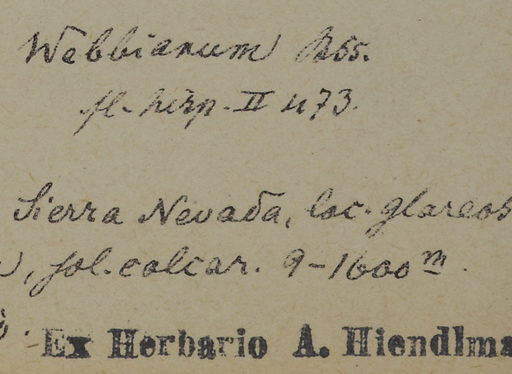 Webbianum Bss.
fl. hisp. II 473.
Sierra Nevada, loc. glareos
, sol. calcar. 9-1600 m.
Ex Herbario A. Hiendlma